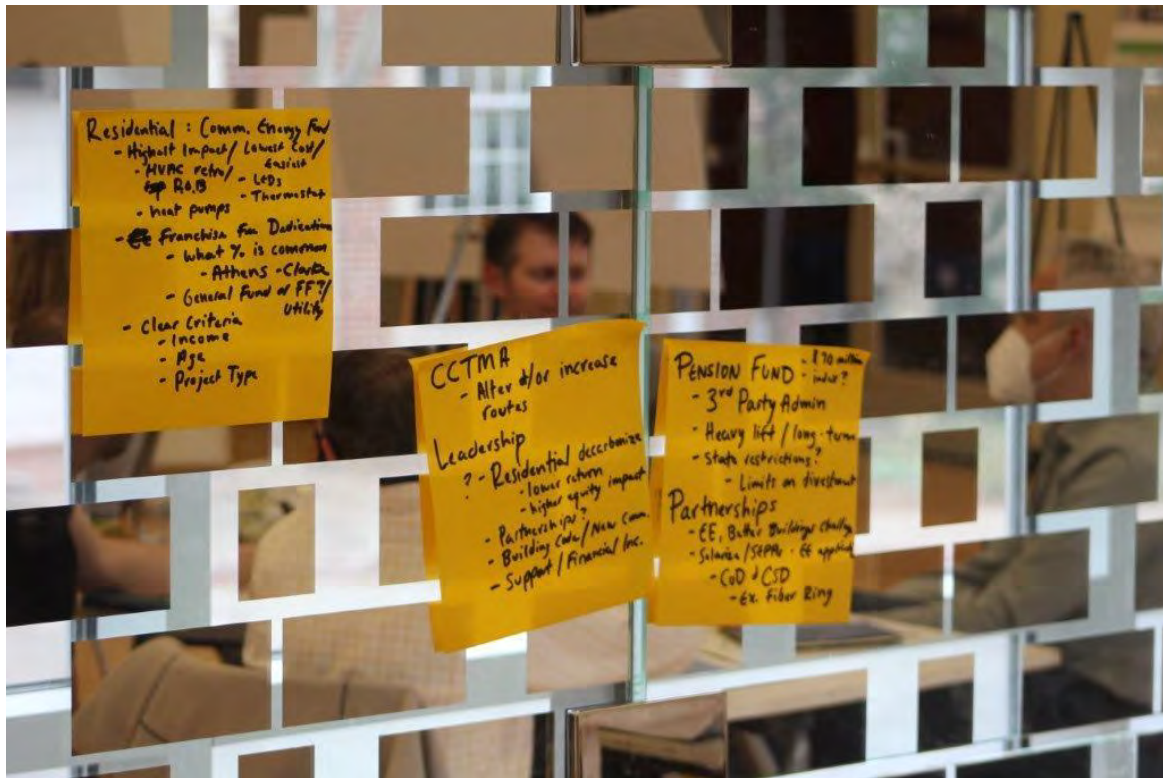 Residential : Comm. Energy Fund
- Highest Impact / Lowest Cost / Easiest
- HVAC retro/ R.O.B
- LEDs
- Thermostat
- heat pumps
- Franchise Fee Dedication
- what % is common
- Athens - Clarke
- General Fund or FF?/
Utility
- Clear Criteria
- Income
- Age
- Project Type
CCTMA
- Alter &/or increase
routes
Leadership
? - Residential decarbonize
- lower return
- higher equity impact
- Partnerships?
- Building Code / New Comm.
- Support / Financial Inc.
PENSION FUND - $70 million
- 3rd Party Admin
- Heavy lift / long-term
- State restrictions?
- Limits on divestment
Partnerships
- EE, Better Buildings Challenge
- Solarize / SEPPs - EE
- CoD & CSD
- Ex. Fiber Ring